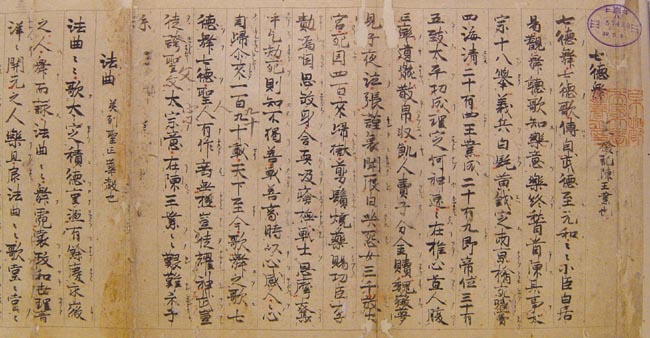 七德舞 美撥乱陳王業也
七德舞七德歌傳自武德至元和〻〻小臣白居
易觀舞聽歌知樂意樂終稽首陳其事太
宗十八擧義兵白旄黃鉞定兩京擒充戮竇
四海清二十有四王業成二十有九即帝位三十有
五致太平功成理定何神速〻在推心置人腹
亡卒遺骸散帛收飢人賣子分金贖魏徵夢
見子夜泣張謹哀聞辰日哭怨女三千放出
宮死囚四百來歸獄剪鬚燒藥賜功臣李
勣嗚咽思殺身含血吮瘡撫戰士思摩奮
呼乞死則知不獨善戰善乗時以心感人〻心
自歸尒来一百九十載天下至今歌舞之歌七
德舞七德聖人有作垂無極豈徒耀神武豈
徒誇聖文太宗意在陳王業〻〻艱難示子
孫
法曲 美列聖正華聲也
法曲〻〻歌大定積德重熙有餘慶永徽
之人舞而詠法曲〻〻舞霓裳政和世理音
洋〻開元之人樂且康法曲〻〻歌堂〻堂〻